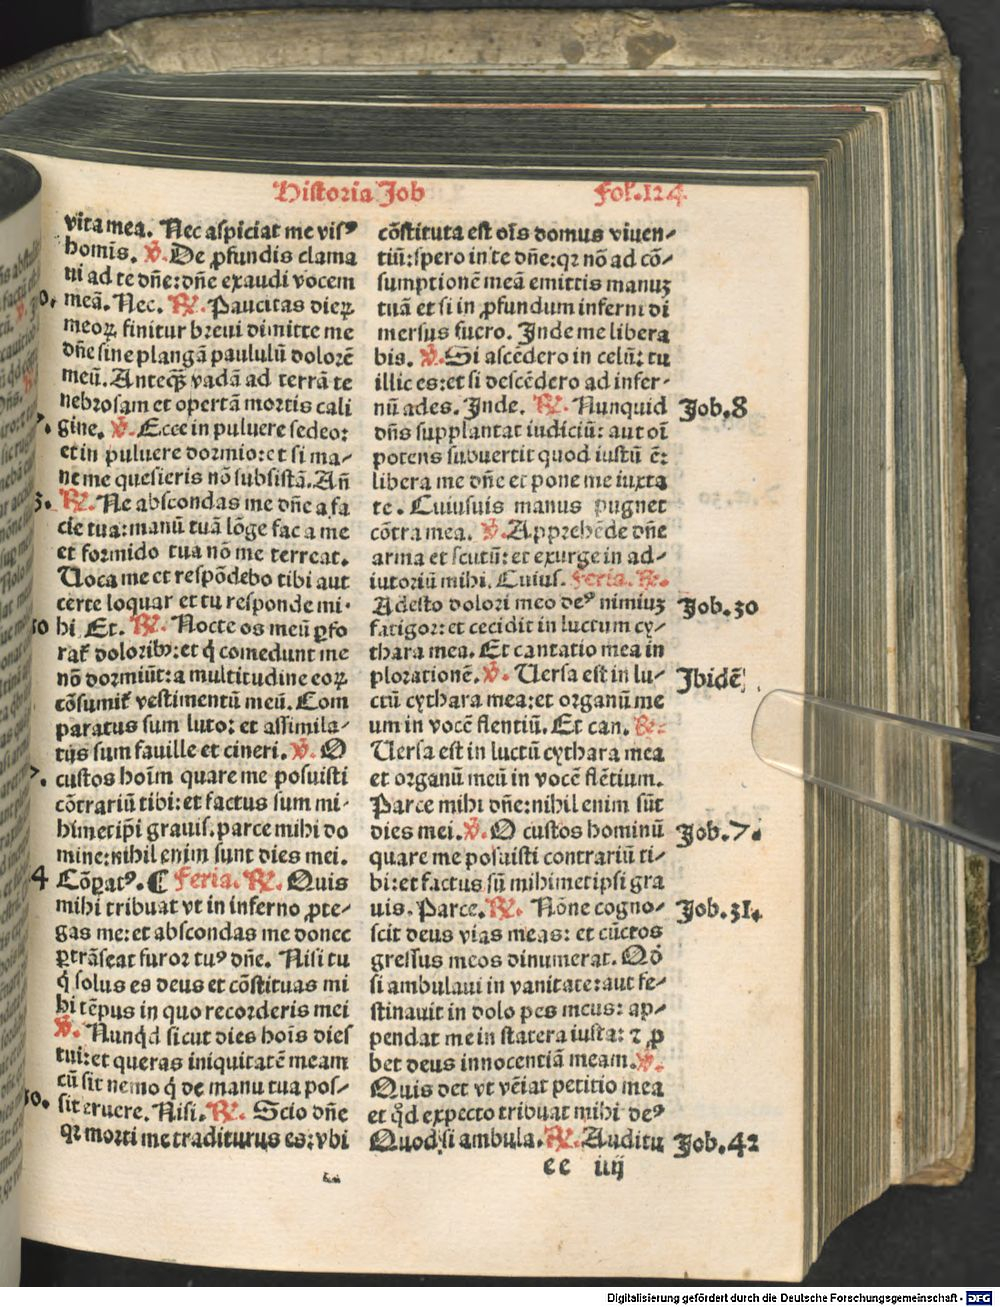 Historia Job
Fol.124
vita mea. Nec aspiciat me visꝰ
homīs. ℣. De ꝓfundis clama
ui ad te dñe: dñe exaudi vocem
meā. Nec. ℟. Paucitas dieꝝ
meoꝝ finitur breui dimitte me
dñe sine plangā paululū dolorē
meū. Anteqͣꝫ vadā ad terrā te
nebrosam et opertā mortis cali
gine. ℣. Ecce in puluere sedeo:
et in puluere dormio: et si ma-
ne me quesieris nō subsistā. Añ
℟. Ne abscondas me dñe a fa
cie tua: manū tuā lōge fac a me
et formido tua nō me terreat.
Uoca me et respōdebo tibi aut
certe loquar et tu responde mi-
hi Et. ℟. Nocte os meū ꝑfo
rat̄ doloribꝰ: et q̇ comedunt me
nō dormiūt: a multitudine eoꝝ
cōsumit̄ vestimentū meū. Com
paratus sum luto: et assimila-
tus sum fauille et cineri. ℣. O
custos hoīm quare me posuisti
cōtrariū tibi: et factus sum mi-
himetip̄i grauis. parce mihi do
mine: nihil enim sunt dies mei.
Cōꝑatꝰ. ¶ Feria. ℟. Quis
mihi tribuat vt in inferno ꝓte-
gas me: et abscondas me donec
ꝑtrāseat furor tuꝰ dñe. Nisi tu
q̇ solus es deus et cōstituas mi
hi tēpus in quo recorderis mei
℣. Nunqͥd sicut dies hoīs dies
tui: et queras iniquitatē meam
cū sit nemo q̇ de manu tua pos-
sit eruere. Nisi. ℟. Scio dñe
qꝛ morti me traditurus es: vbi
cōstituta est oīs domus viuen-
tiū: spero in te dñe: qꝛ nō ad cō-
sumptionē meā emittis manuꝫ
tuā et si in ꝓfundum inferni di
mersus fuero. Inde me libera
bis. ℣. Si ascēdero in celū: tu
illic es: et si descēdero ad infer-
nū ades. Inde. ℟. Nunquid
dñs supplantat iudiciū: aut oī
potens subuertit quod iustū ē:
libera me dñe et pone me iuxta
te. Cuiusuis manus pugnet
cōtra mea. ℣. Apprehēde dñe
arma et scutū: et exurge in ad-
iutoriū mihi. Cuius. Feria. ℟.
Adesto dolori meo deꝰ nimiuꝫ
fatigor: et cecidit in luctum cy-
thara mea. Et cantatio mea in
plorationē. ℣. Uersa est in lu-
ctū cythara mea: et organū me
um in vocē flentiū. Et can. ℟.
Uersa est in luctū cythara mea
et organū meū in vocē flētium.
Parce mihi dñe: nihil enim sūt
dies mei. ℣. O custos hominū
quare me posuisti contrariū ti-
bi: et factus sū mihimetipsi gra
uis. Parce. ℟. Nōne cogno-
scit deus vias meas: et cūctos
gressus meos dinumerat. Qd̓
si ambulaui in vanitate: aut fe-
stinauit in dolo pes meus: ap-
pendat me in statera iusta: ⁊ ꝓ
bet deus innocentiā meam. ℣.
Quis det vt vēiat petitio mea
et qͦd expecto tribuat mihi deꝰ
Quod si ambula. ℟. Auditu
ee iiij
Job.8
Job.30
Ibidē
Job.7.
Job.31.
Job.42
Digitalisierung gefördert durch die Deutsche Forschungsgemeinschaft - DFG